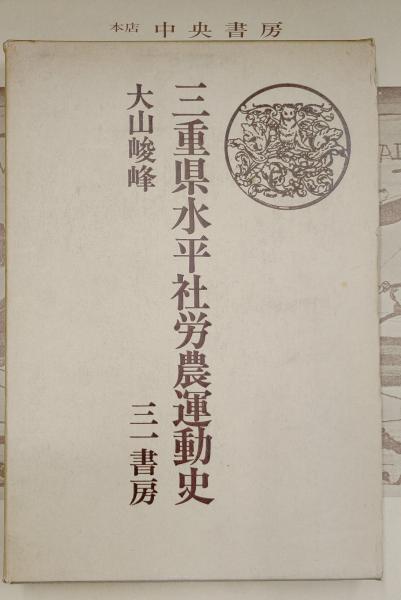 本店 中央書房
三重県水平社労農運動史
大山峻峰
三一書房